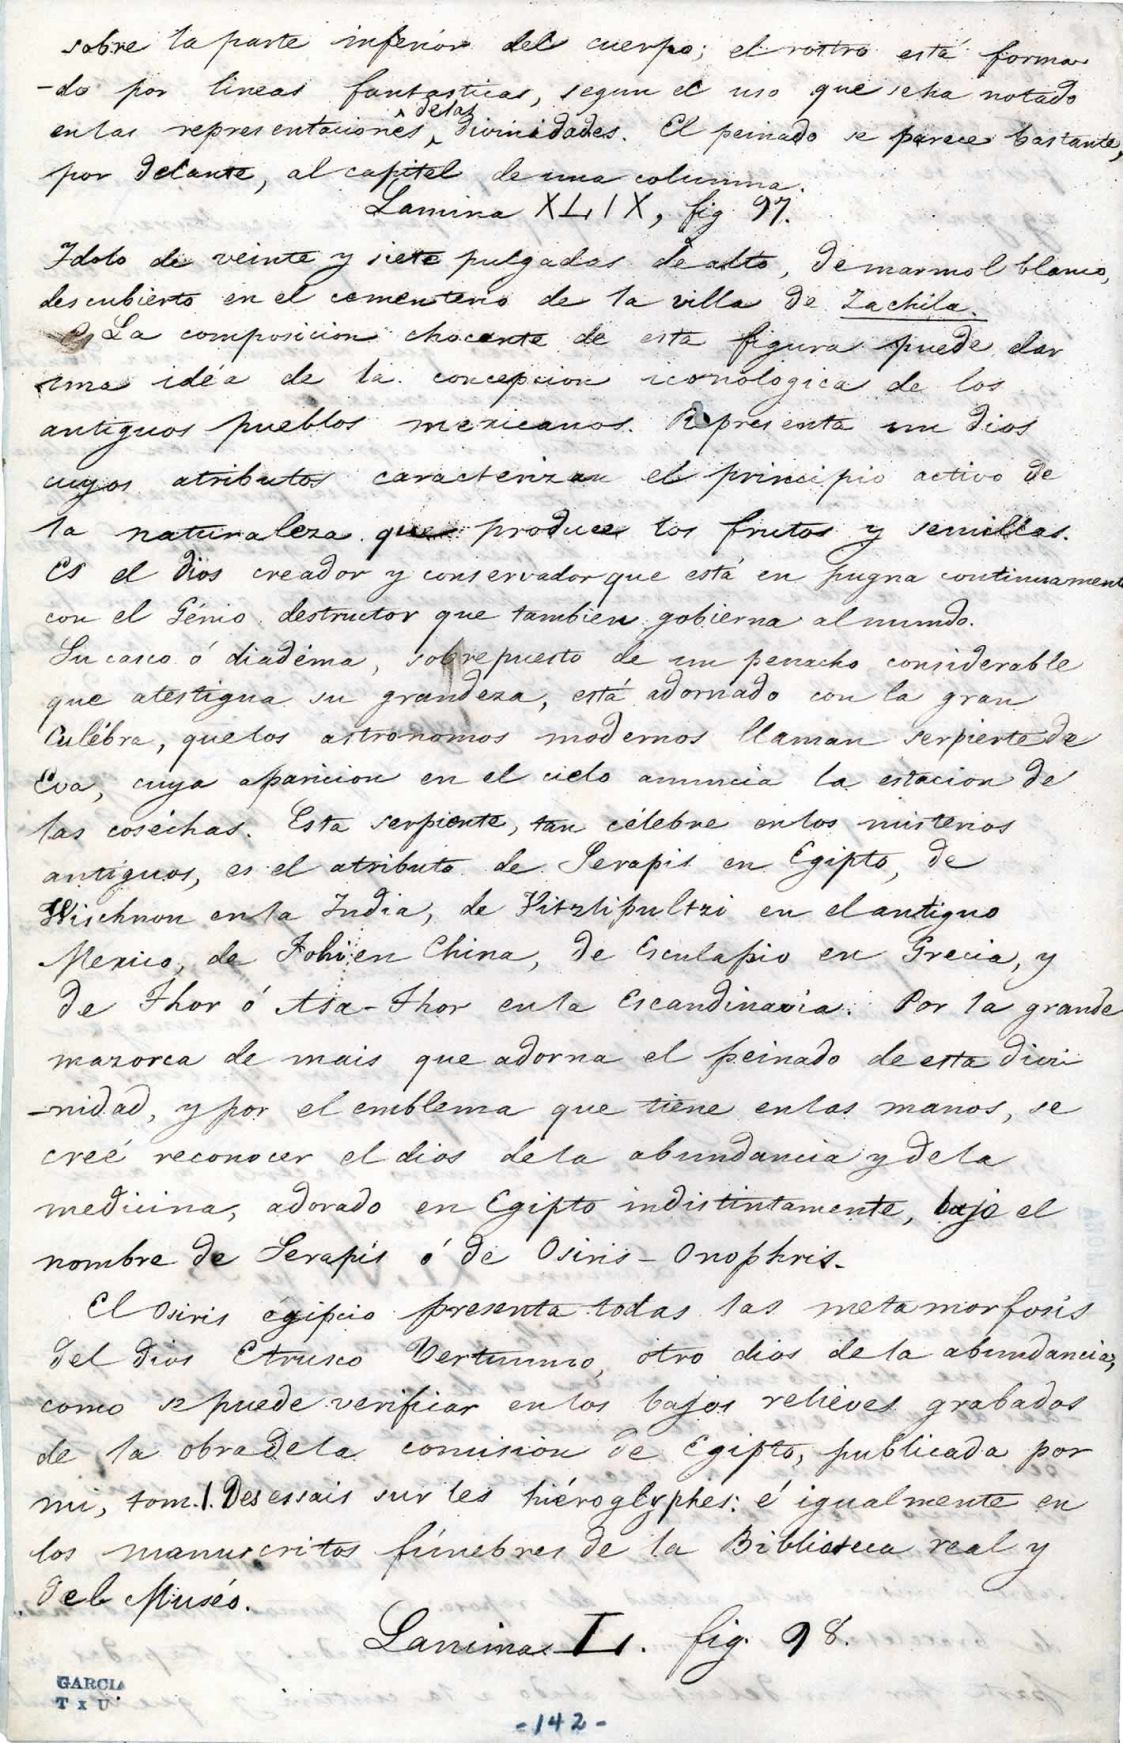 sobre la parte inferior del cuerpo; el rostro está forma
-do por lineas fantasticas, segun el uso que seha notado
enlas representaciones delas divinidades. El peinado se parece bastante,
por delante, al capitel de una columna.
Lamina XLIX, fig 97.
Idolo de veinte y siete pulgadas de alto, de marmol blanco,
descubierto en el cementerio de la villa de Zachila.
La composicion chocante de esta figura puede dar
una idéa de la concepcion iconologica de los
antiguos pueblos mexicanos. Representa un dios
cuyos atributos caracterizan el principio activo de
la naturaleza que produce los frutos y semillas.
Es el dios creador y conservador que está en pugna continuament
con el Génio destructor que tambien gobierna al mundo.
Su casco ó diadéma, sobrepuesto de un penacho considerable
que atestigua su grandeza, está adornado con la gran
Culébra, quelos astronomos modernos llaman serpiente de
Eva, cuya aparicion en el cielo anuncia la estacion de
las coséchas. Esta serpiente, tan célebre enlos misterios
antiguos, es el atributo de Serapis en Egipto, de
Wischnou enla India, de Vitzlipultzi en el antiguo
Mexico, de Fohi en China, de Esculapio en Grecia, y
de Thor ó Asa-Thor enla Escandinavia. Por la grande
mazorca de mais que adorna el peinado de esta divi
-nidad, y por el emblema que tiene enlas manos, se
creé reconocer el dios dela abundancia y dela
medicina, adorado en Egipto indistintamente, bajo el
nombre de Serapis ó de Osiris-Onophris.
El Osiris egipcio presenta todas las metamorfosis
del dios Etrusco Vertumno, otro dios de la abundancia,
como se puede verificar en los bajos relieves grabados
de la obra dela comision de Egipto, publicada por
mi, tom. 1. Des essais sur les hiéroglyphes: é igualmente en
los manuscritos fúnebres de la Biblioteca real y
del Muséo.
Lamina L. fig. 98.
GARCIA
T x U
-142-